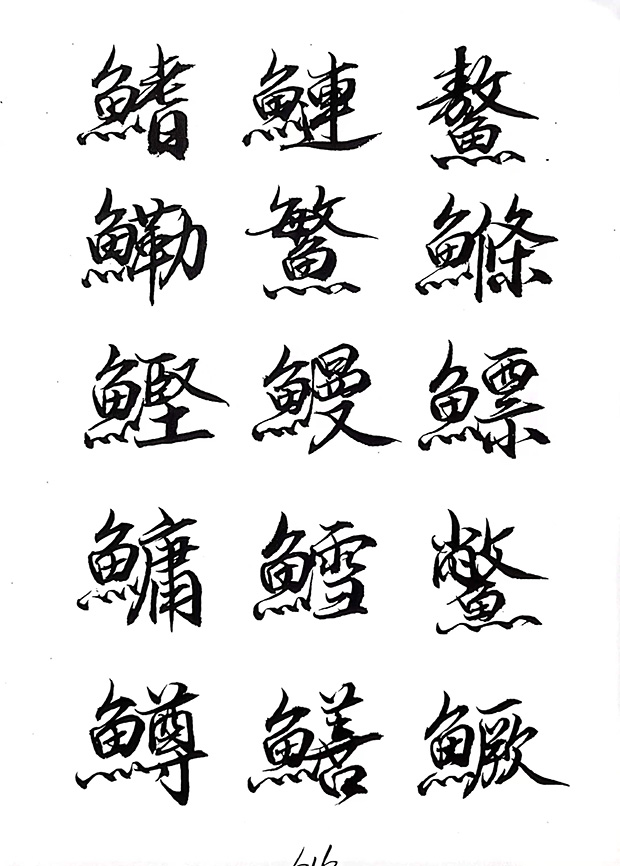 鰭 鰱 鰲
鰳 鰵 鰷
鰹 鰻 鰾
鱅 鱈 鱉
鱒 鱔 鱖